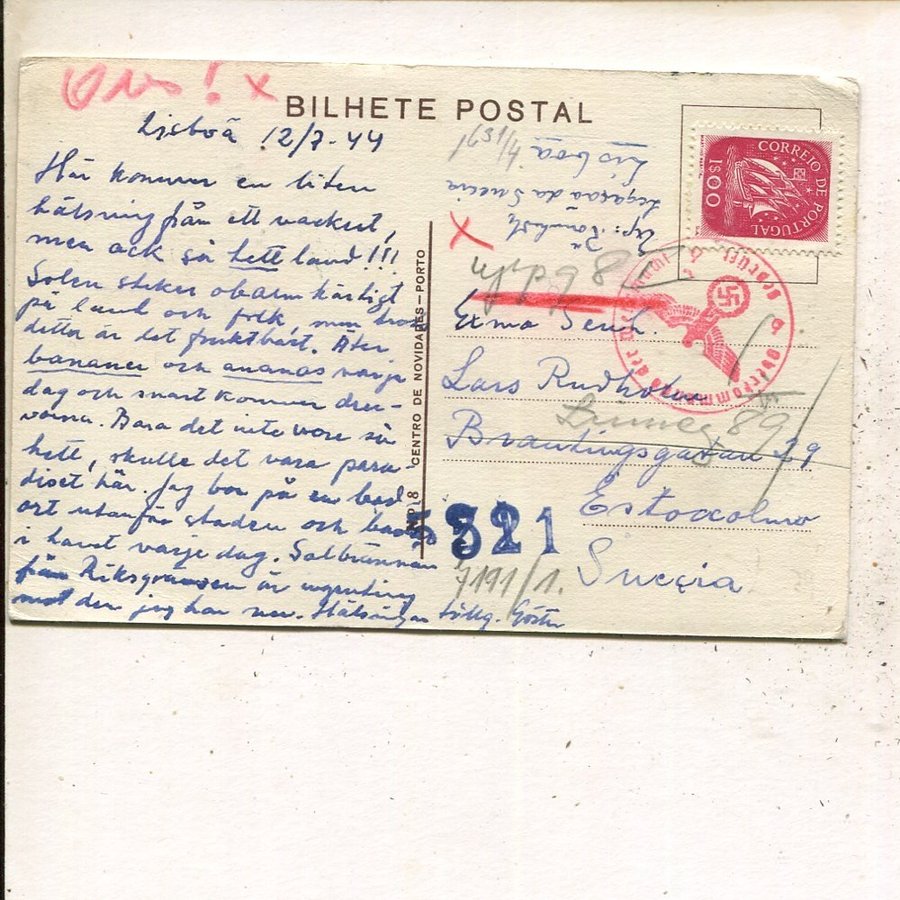 Obs! x
BILHETE POSTAL
Lisboa 12/7-44
Här kommer en liten
hälsning från ett vackert,
men ack så hett land!!!
Solen steker obarmhärtigt
på land och folk, men trots
detta är det fruktbart. Äter
bananer och ananas varje
dag och snart kommer dru-
vorna. Bara det inte vore så
hett, skulle det vara para-
diset här. Jag bor på en bad
ort utanför staden och badar
i havet varje dag. Solbrännan
från Riksgränsen är ingenting
mot den jag har nu. Hälsningar tillg. Gösta
CENTRO DE NOVIDADES-PORTO
CORREIO DE PORTUGAL
1$00
Legaçao da Suecia
Lisboa
1631/4
x
Oberkommando der
geprüft
b
Exmo Senh.
Lars Rudholm
Brantingsgatan 39
Estocolmo
Suecia
89
5321
7191/1.